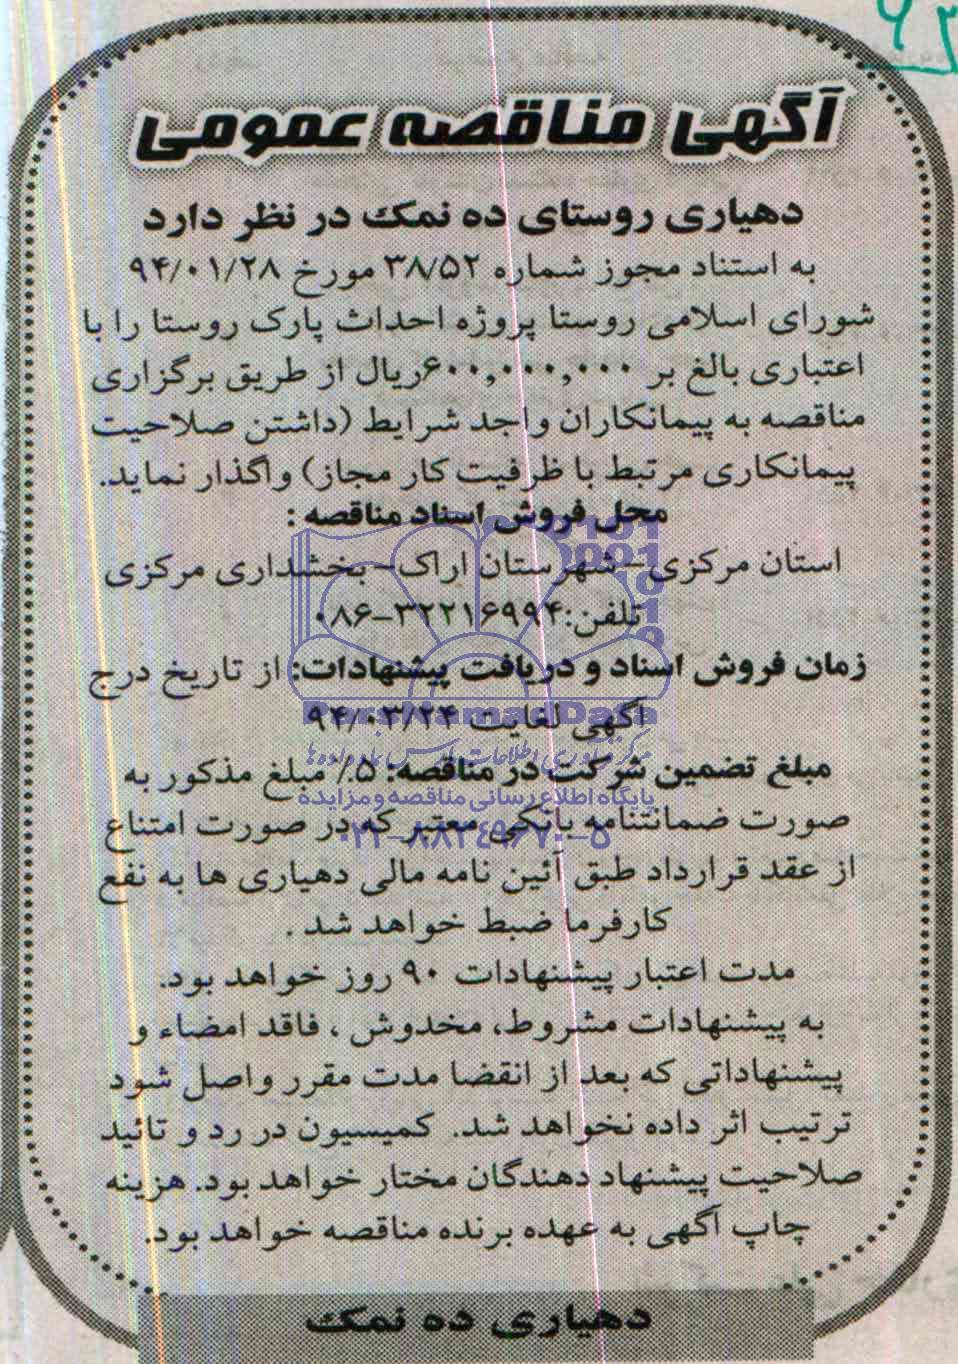 ۶۳
آگهی مناقصه عمومی
دهیاری روستای ده نمک در نظر دارد
به استناد مجوز شماره ۳۸/۵۲ مورخ ۹۴/۰۱/۲۸
شورای اسلامی روستا پروژه احداث پارک روستا را با
اعتباری بالغ بر ۶۰۰,۰۰۰,۰۰۰ریال از طریق برگزاری
مناقصه به پیمانکاران واجد شرایط (داشتن صلاحیت
پیمانکاری مرتبط با ظرفیت کار مجاز) واگذار نماید.
محل فروش اسناد مناقصه :
استان مرکزی- شهرستان اراک- بخشداری مرکزی
تلفن:۳۲۲۱۶۹۹۴-۰۸۶
زمان فروش اسناد و دریافت پیشنهادات: از تاریخ درج
آگهی لغایت ۹۴/۰۳/۲۴
ParsNamadData
مرکز فرآوری اطلاعات پارس نماد داده‌ها
مبلغ تضمین شرکت در مناقصه: ۵٪ مبلغ مذکور به
پایگاه اطلاع رسانی مناقصه و مزایده
صورت ضمانتنامه بانکی معتبر که در صورت امتناع
۰۲۱-۸۸۳۴۹۶۷۰-۵
از عقد قرارداد طبق آئین نامه مالی دهیاری ها به نفع
کارفرما ضبط خواهد شد .
مدت اعتبار پیشنهادات ۹۰ روز خواهد بود.
به پیشنهادات مشروط، مخدوش ، فاقد امضاء و
پیشنهاداتی که بعد از انقضا مدت مقرر واصل شود
ترتیب اثر داده نخواهد شد. کمیسیون در رد و تائید
صلاحیت پیشنهاد دهندگان مختار خواهد بود. هزینه
چاپ آگهی به عهده برنده مناقصه خواهد بود.
دهیاری ده نمک